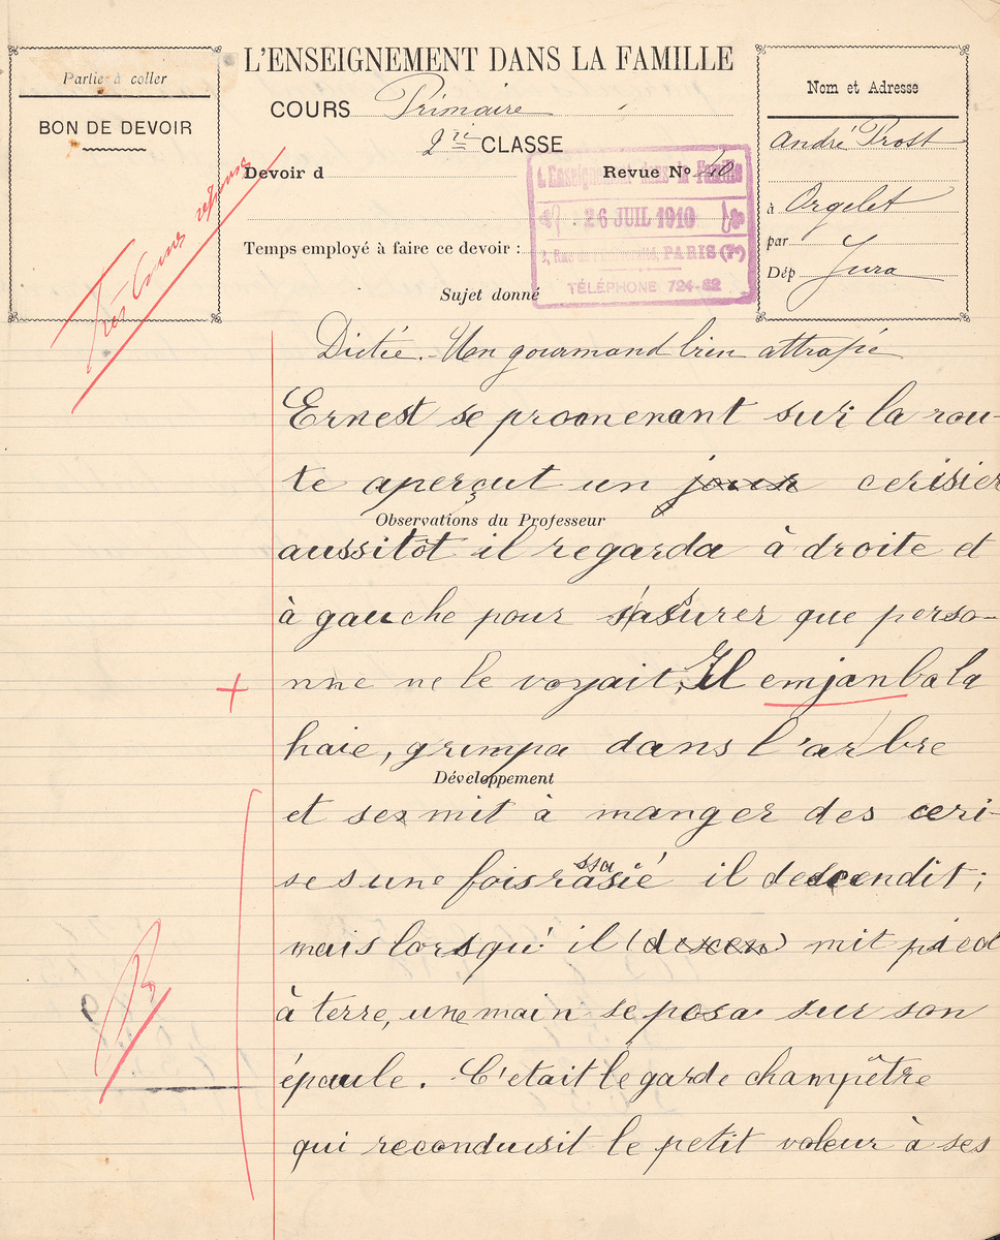 Partie à coller
BON DE DEVOIR
L'ENSEIGNEMENT DANS LA FAMILLE
COURS Primaire
2re CLASSE
Devoir d
Revue No 40
Temps employé à faire ce devoir :
Sujet donné
L'Enseignement dans la Famille
26 JUIL 1910
2, Rue de l'Université, PARIS (7e)
TÉLÉPHONE 724-82
Nom et Adresse
André Prost
à Orgelet
par
Dép Jura
Très
Dictée. Un gourmand bien attrapé
Ernest se promenant sur la rou-
te aperçut un jour cerisier
Observations du Professeur
aussitôt il regarda à droite et
à gauche pour s'assurer que perso-
nne ne le voyait, Il emjanba la
haie, grimpa dans l'arbre
Développement
et ses mit à manger des ceri-
ses une fois rassasié il descendit ;
mais lorsqu' il (descen) mit pied
à terre, une main se posa sur son
épaule. C'etait le garde champêtre
qui reconduisit le petit voleur à ses
B